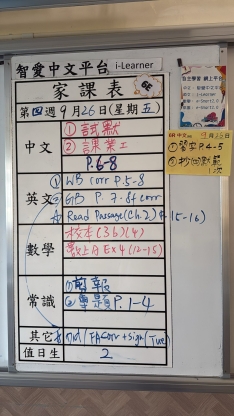 智愛中文平台 i-Learner
家課表
6E
第四週9月26日(星期五)
中文
①試默
②課業工
P.6-8
英文
① WB corr P.5-8
③ GB P.7-8+ corr
Read Passage (Ch.2) P.15-16)
數學
校本(3b)(4)
數上A Ex4 (12-15)
常識
①剪報
②專題 P.1-4
其它
+ sign (Tue)
值日生
2
自主學習 網上平台
6E 中文 9月26日
①習字P.4-5